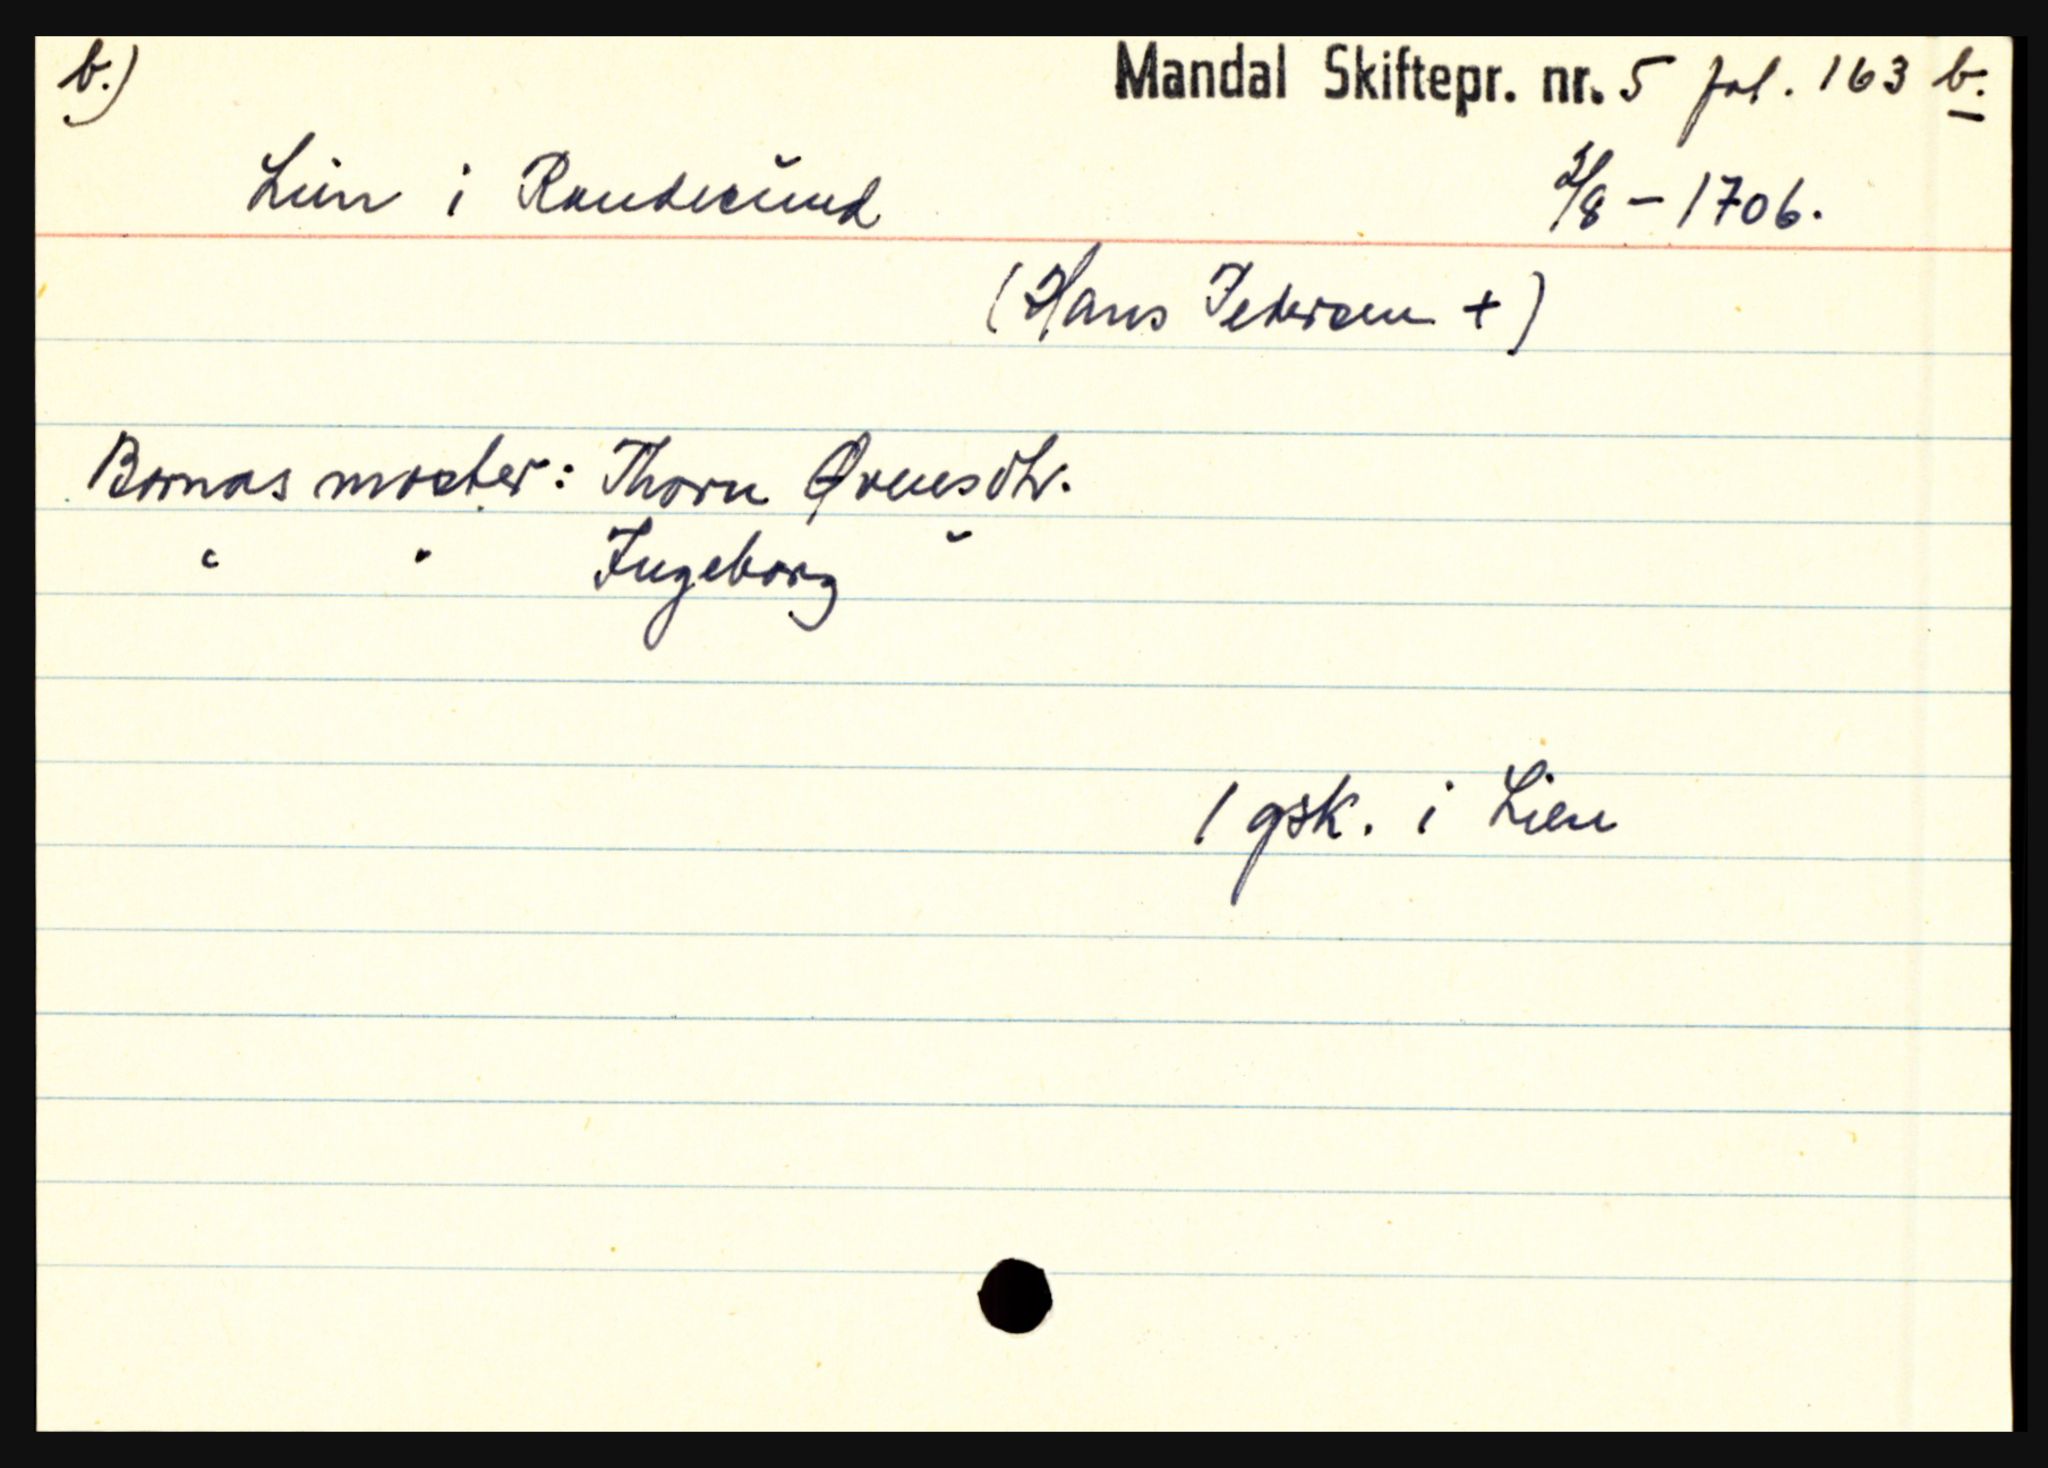 b.)
Mandal Skiftepr. nr. 5 fol. 163 b.
Lien i Randesund
/8 - 1706.
(Hans Petersen +)
Bornas moster: Thorn Ovensdtr.
" " Ingeborg "
1 gsk. i Lien